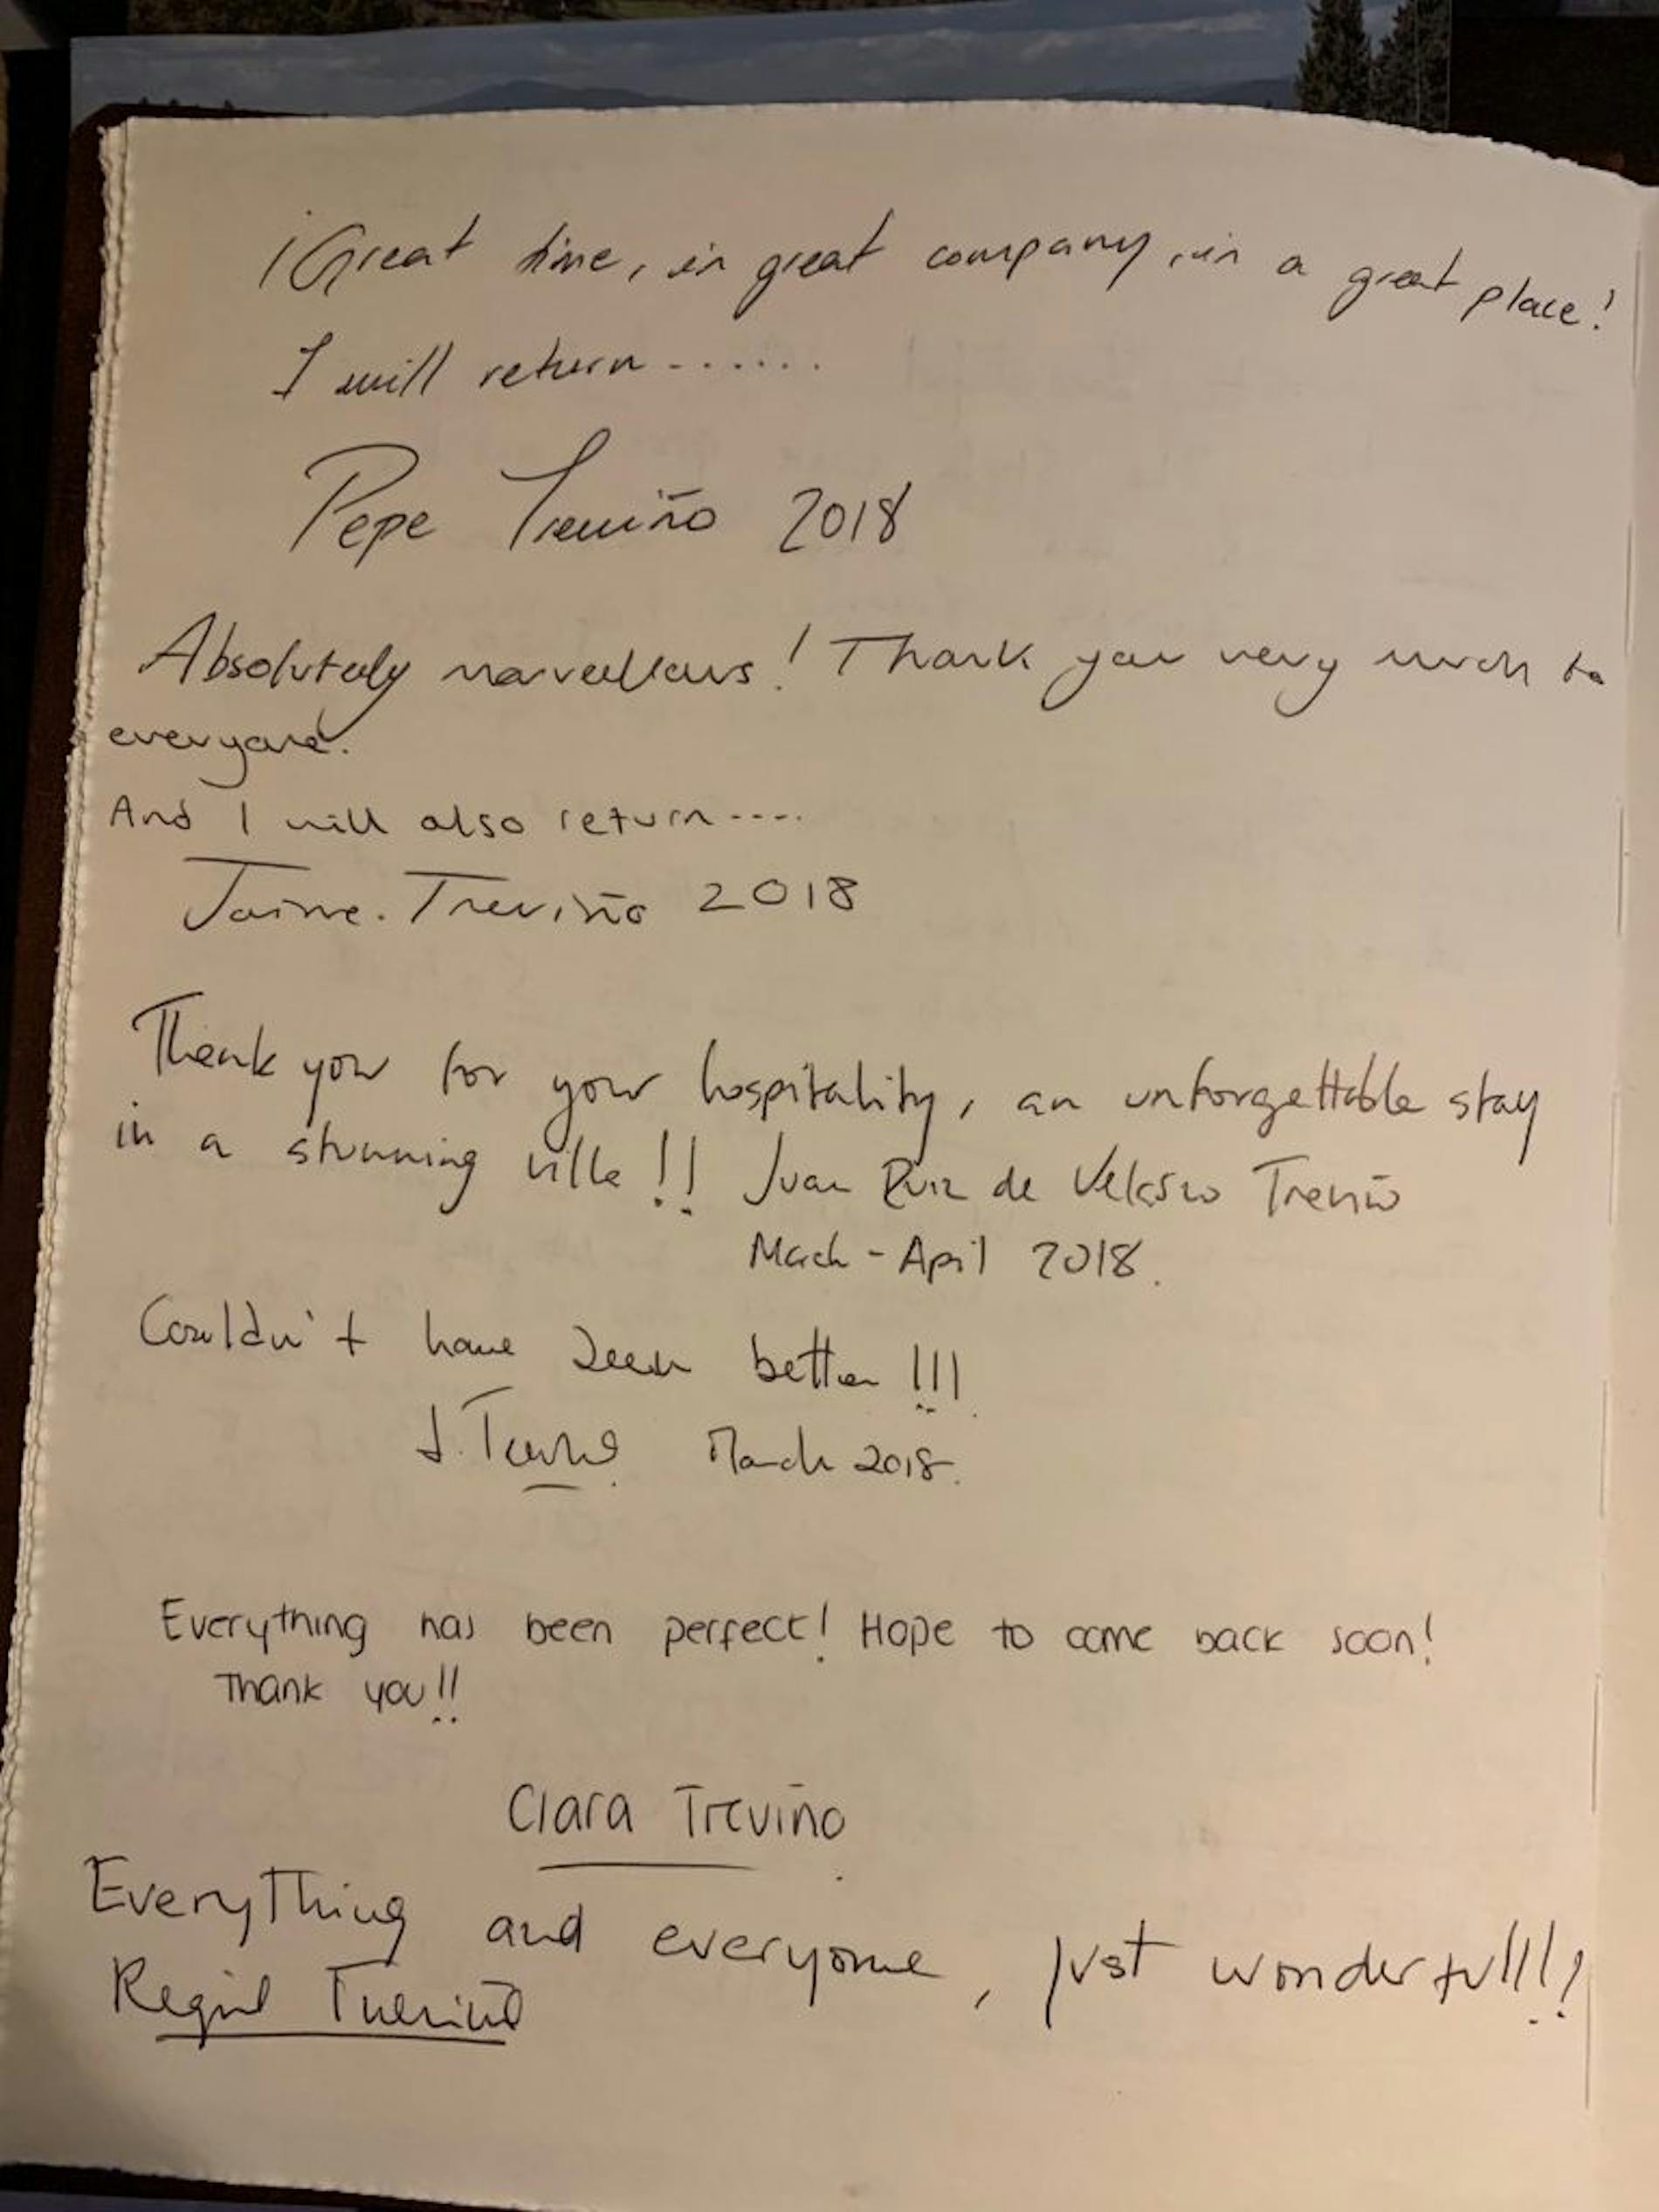 ¡Great time, in great company, in a great place!
I will return.......
Pepe Treviño 2018
Absolutely marvellous! Thank you very much to
everyone.
And I will also return....
Jaime Treviño 2018
Thank you for your hospitality, an unforgettable stay
in a stunning villa!! Juan Ruiz de Velasco Treviño
March - April 2018.
Couldn't have been better!!!
J. Treviño March 2018.
Everything has been perfect! Hope to come back soon!
Thank you!!
Clara Treviño
Everything and everyone, just wonderful!!!
Treviño